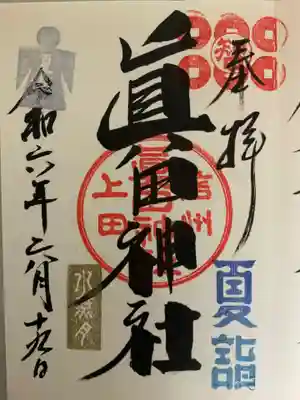 奉拝
夏詣
眞田神社
信州
上田
令和六年六月十九日
水無月